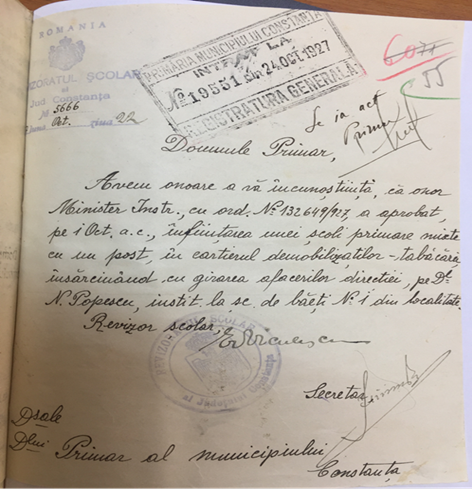 ROMANIA
REVIZORATUL ȘCOLAR
al
Jud Constanța
№ 5666
Luna Oct. ziua 22
PRIMĂRIA MUNICIPIULUI CONSTANȚA
INTRAT LA
№ 19551 din 24 OCT 1927
REGISTRATURA GENERALĂ
55
Se ia act
Primar
Domnule Primar,
Avem onoare a vă încunoștiința, că onor
Minister Instr., cu ord. № 132649/927, a aprobat,
pe 1 Oct. a.c., înființarea unei școli primare mixte
cu un post, în cartierul demobilizaților - tabăcări
însărcinând cu girarea afacerilor direcției, pe Dl
N. Popescu, instit. la șc. de băeți № 1 din localitate.
Revizor școlar,
REVIZORATUL ȘCOLAR
al Județului Constanța
Secretar
Dsale
Dlui Primar al municipiului
Constanța